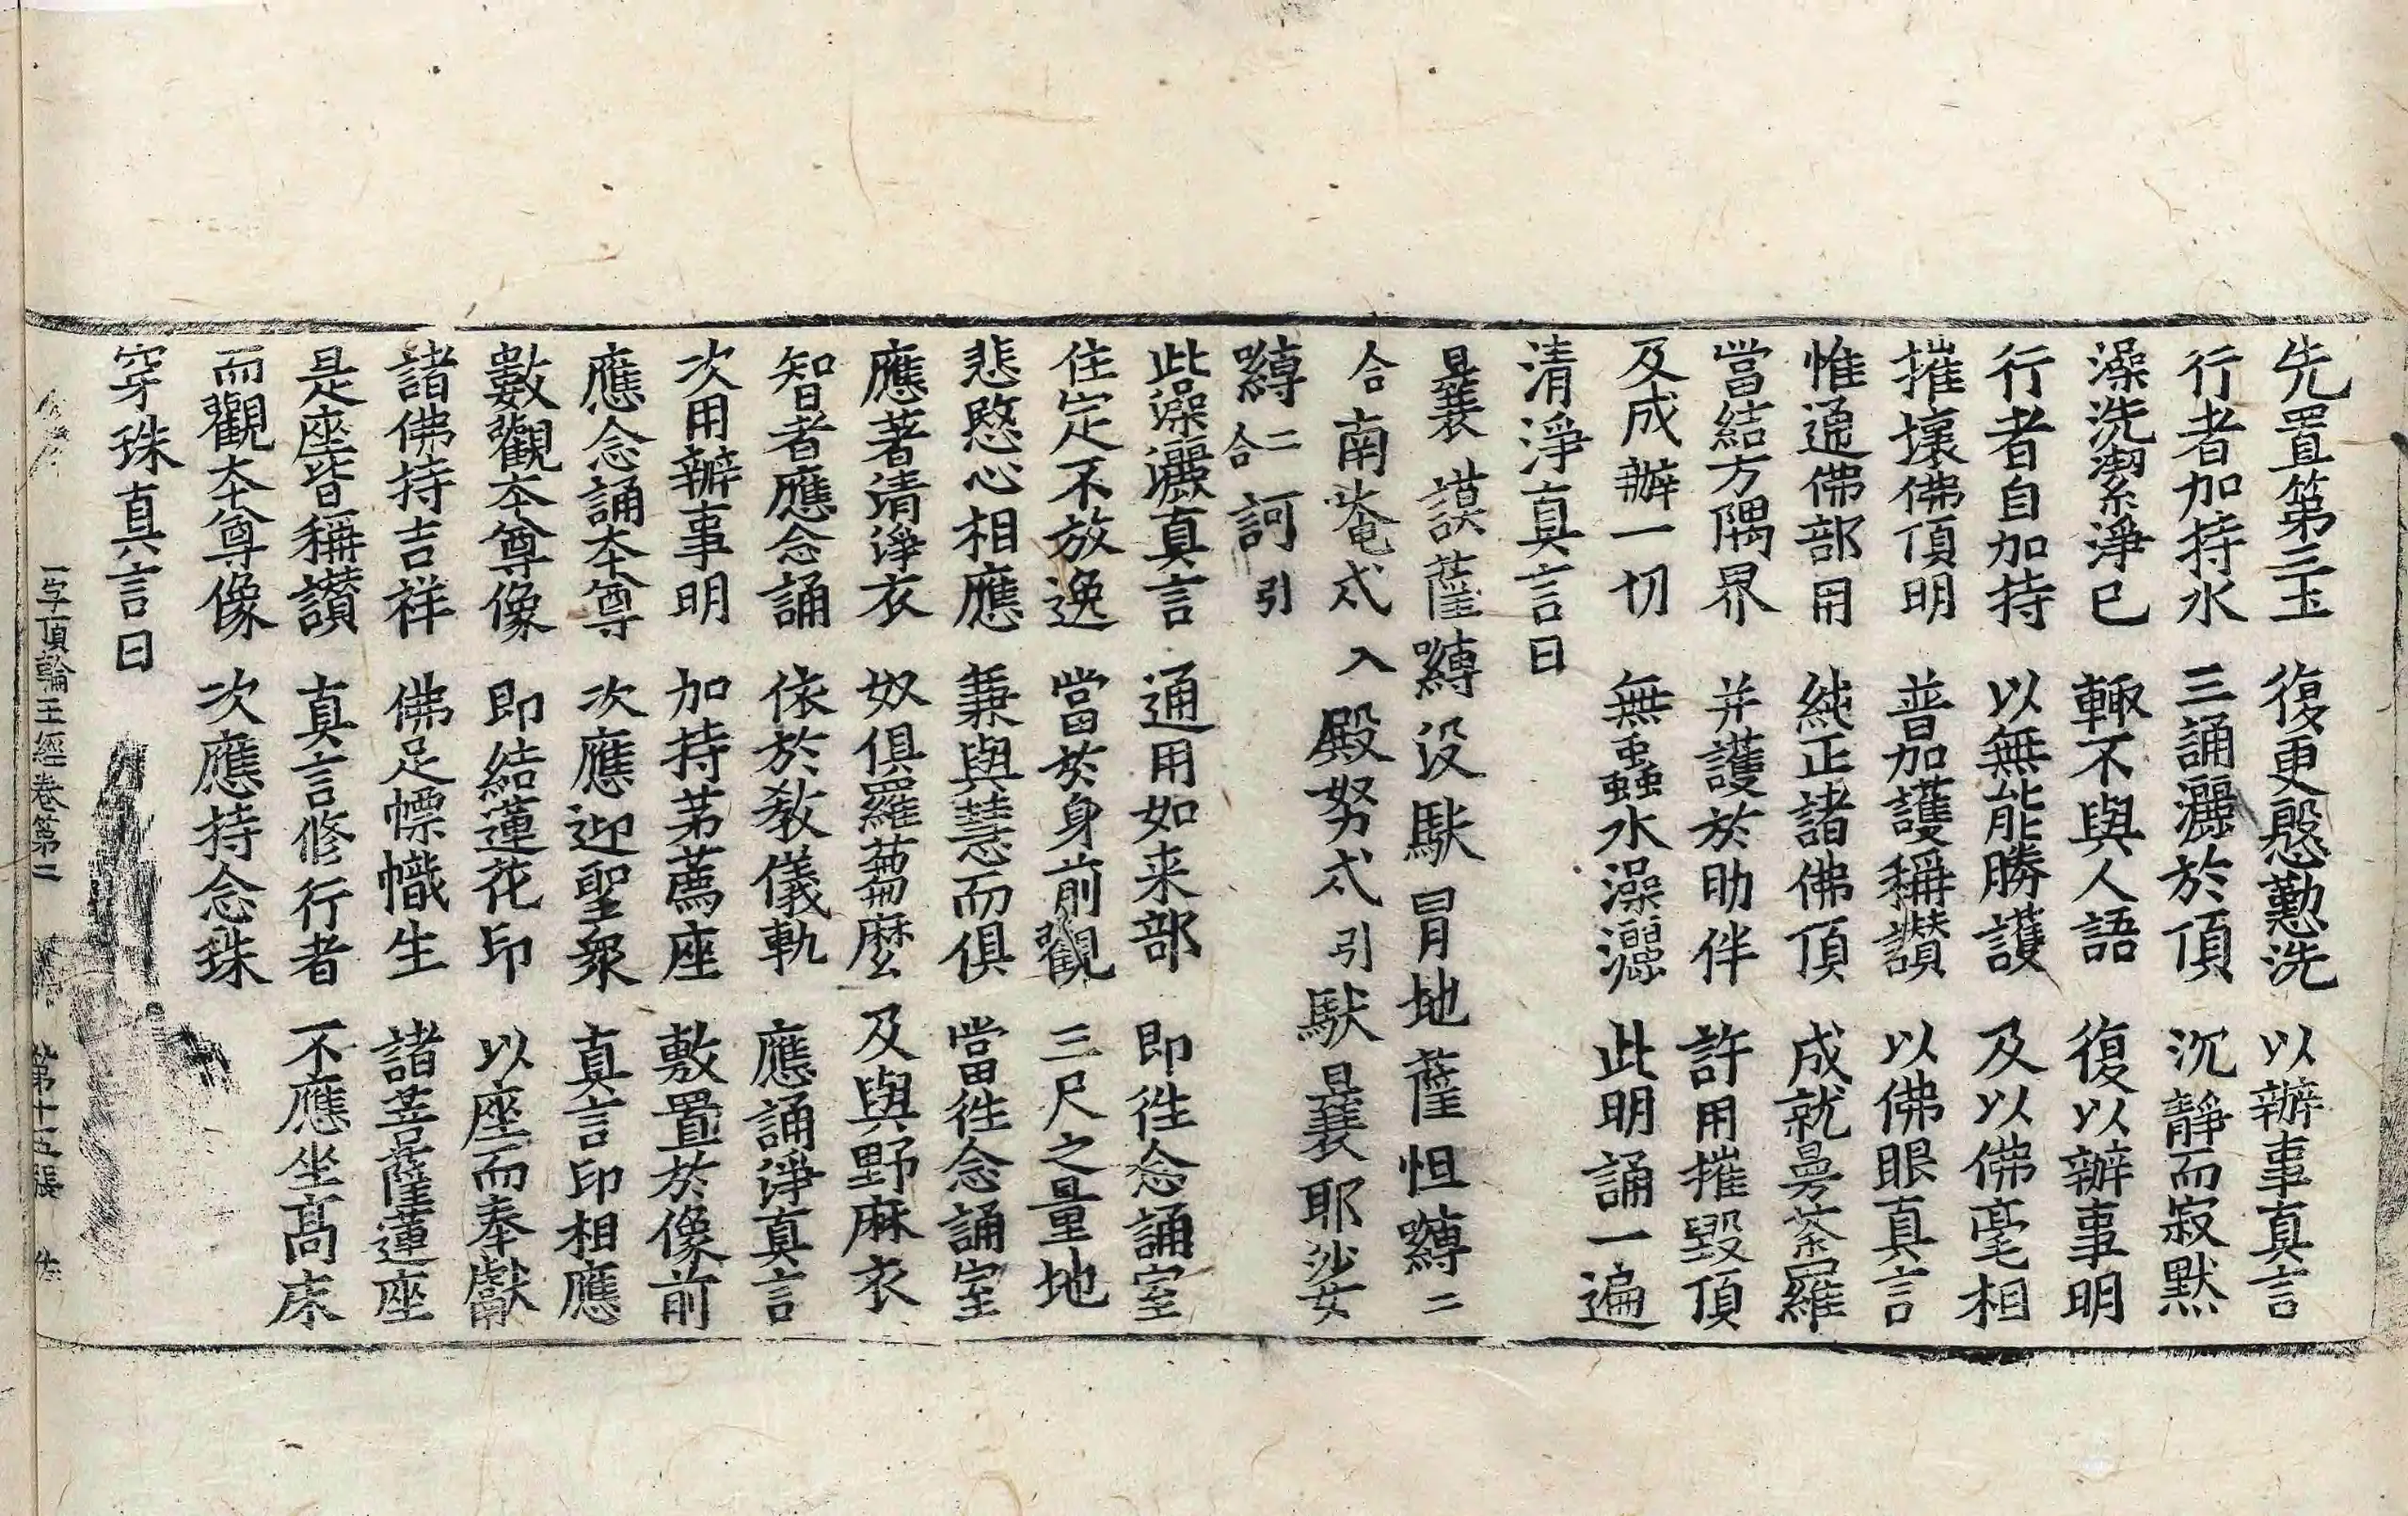 先置第三玉　復更慇懃洗　以辦事真言
行者加持水　三誦灑於頂　沉靜而寂默
澡洗潔淨已　輙不與人語　復以辦事明
行者自加持　以無能勝護　及以佛毫相
摧壞佛頂明　普加護稱讃　以佛眼真言
惟通佛部用　純正諸佛頂　成就曼荼羅
當結方隅界　并護於助伴　許用摧毀頂
及成辦一切　無蟲水澡灑　此明誦一遍
清淨真言曰
曩謨薩嚩没馱冐地薩怛嚩二
合南唵弍入殿努弍引馱曩耶娑
嚩二合訶引
此澡灑真言　通用如来部　即徃念誦室
住定不放逸　當於身前觀　三尺之量地
悲愍心相應　兼與慧而俱　當徃念誦室
應著清淨衣　奴俱羅蒭麼　及與野麻衣
智者應念誦　依於教儀軌　應誦淨真言
次用辦事明　加持茅薦座　敷置於像前
應念誦本尊　次應迎聖衆　真言印相應
數觀本尊像　即結蓮花印　以座而奉獻
諸佛持吉祥　佛足幖幟生　諸菩薩蓮座
是座皆稱讃　真言修行者　不應坐髙床
而觀本尊像　次應持念珠
穿珠真言曰
一字頂輪王經卷第二　第十五張